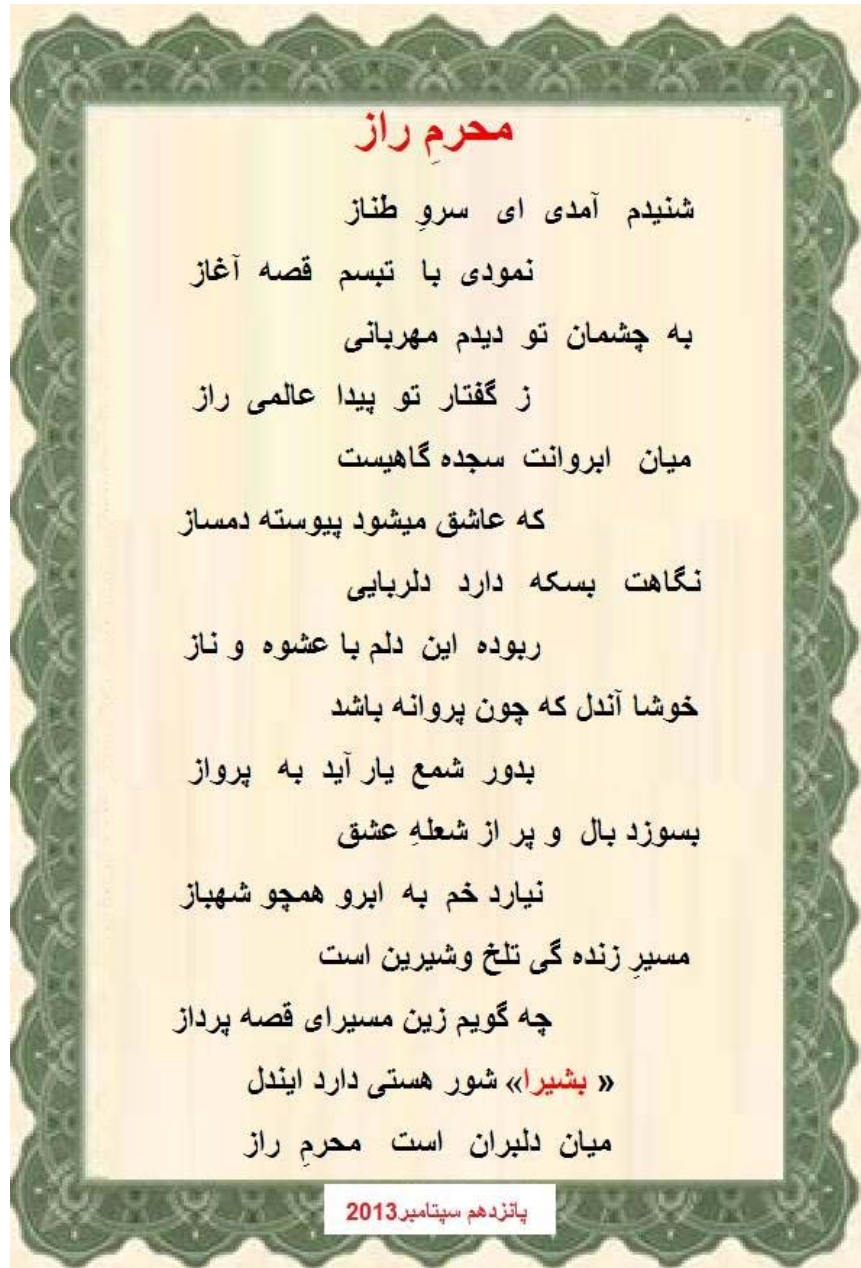 محرمِ راز
شنیدم آمدی ای سروِ طناز
نمودی با تبسم قصه آغاز
به چشمان تو دیدم مهربانی
ز گفتار تو پیدا عالمی راز
میان ابروانت سجده گاهیست
که عاشق میشود پیوسته دمساز
نگاهت بسکه دارد دلربایی
ربوده این دلم با عشوه و ناز
خوشا آندل که چون پروانه باشد
بدور شمع یار آید به پرواز
بسوزد بال و پر از شعلهِ عشق
نیارد خم به ابرو همچو شهباز
مسیرِ زنده گی تلخ وشیرین است
چه گویم زین مسیرای قصه پرداز
« بشیرا» شور هستی دارد ایندل
میان دلبران است محرمِ راز
پانزدهم سپتامبر2013